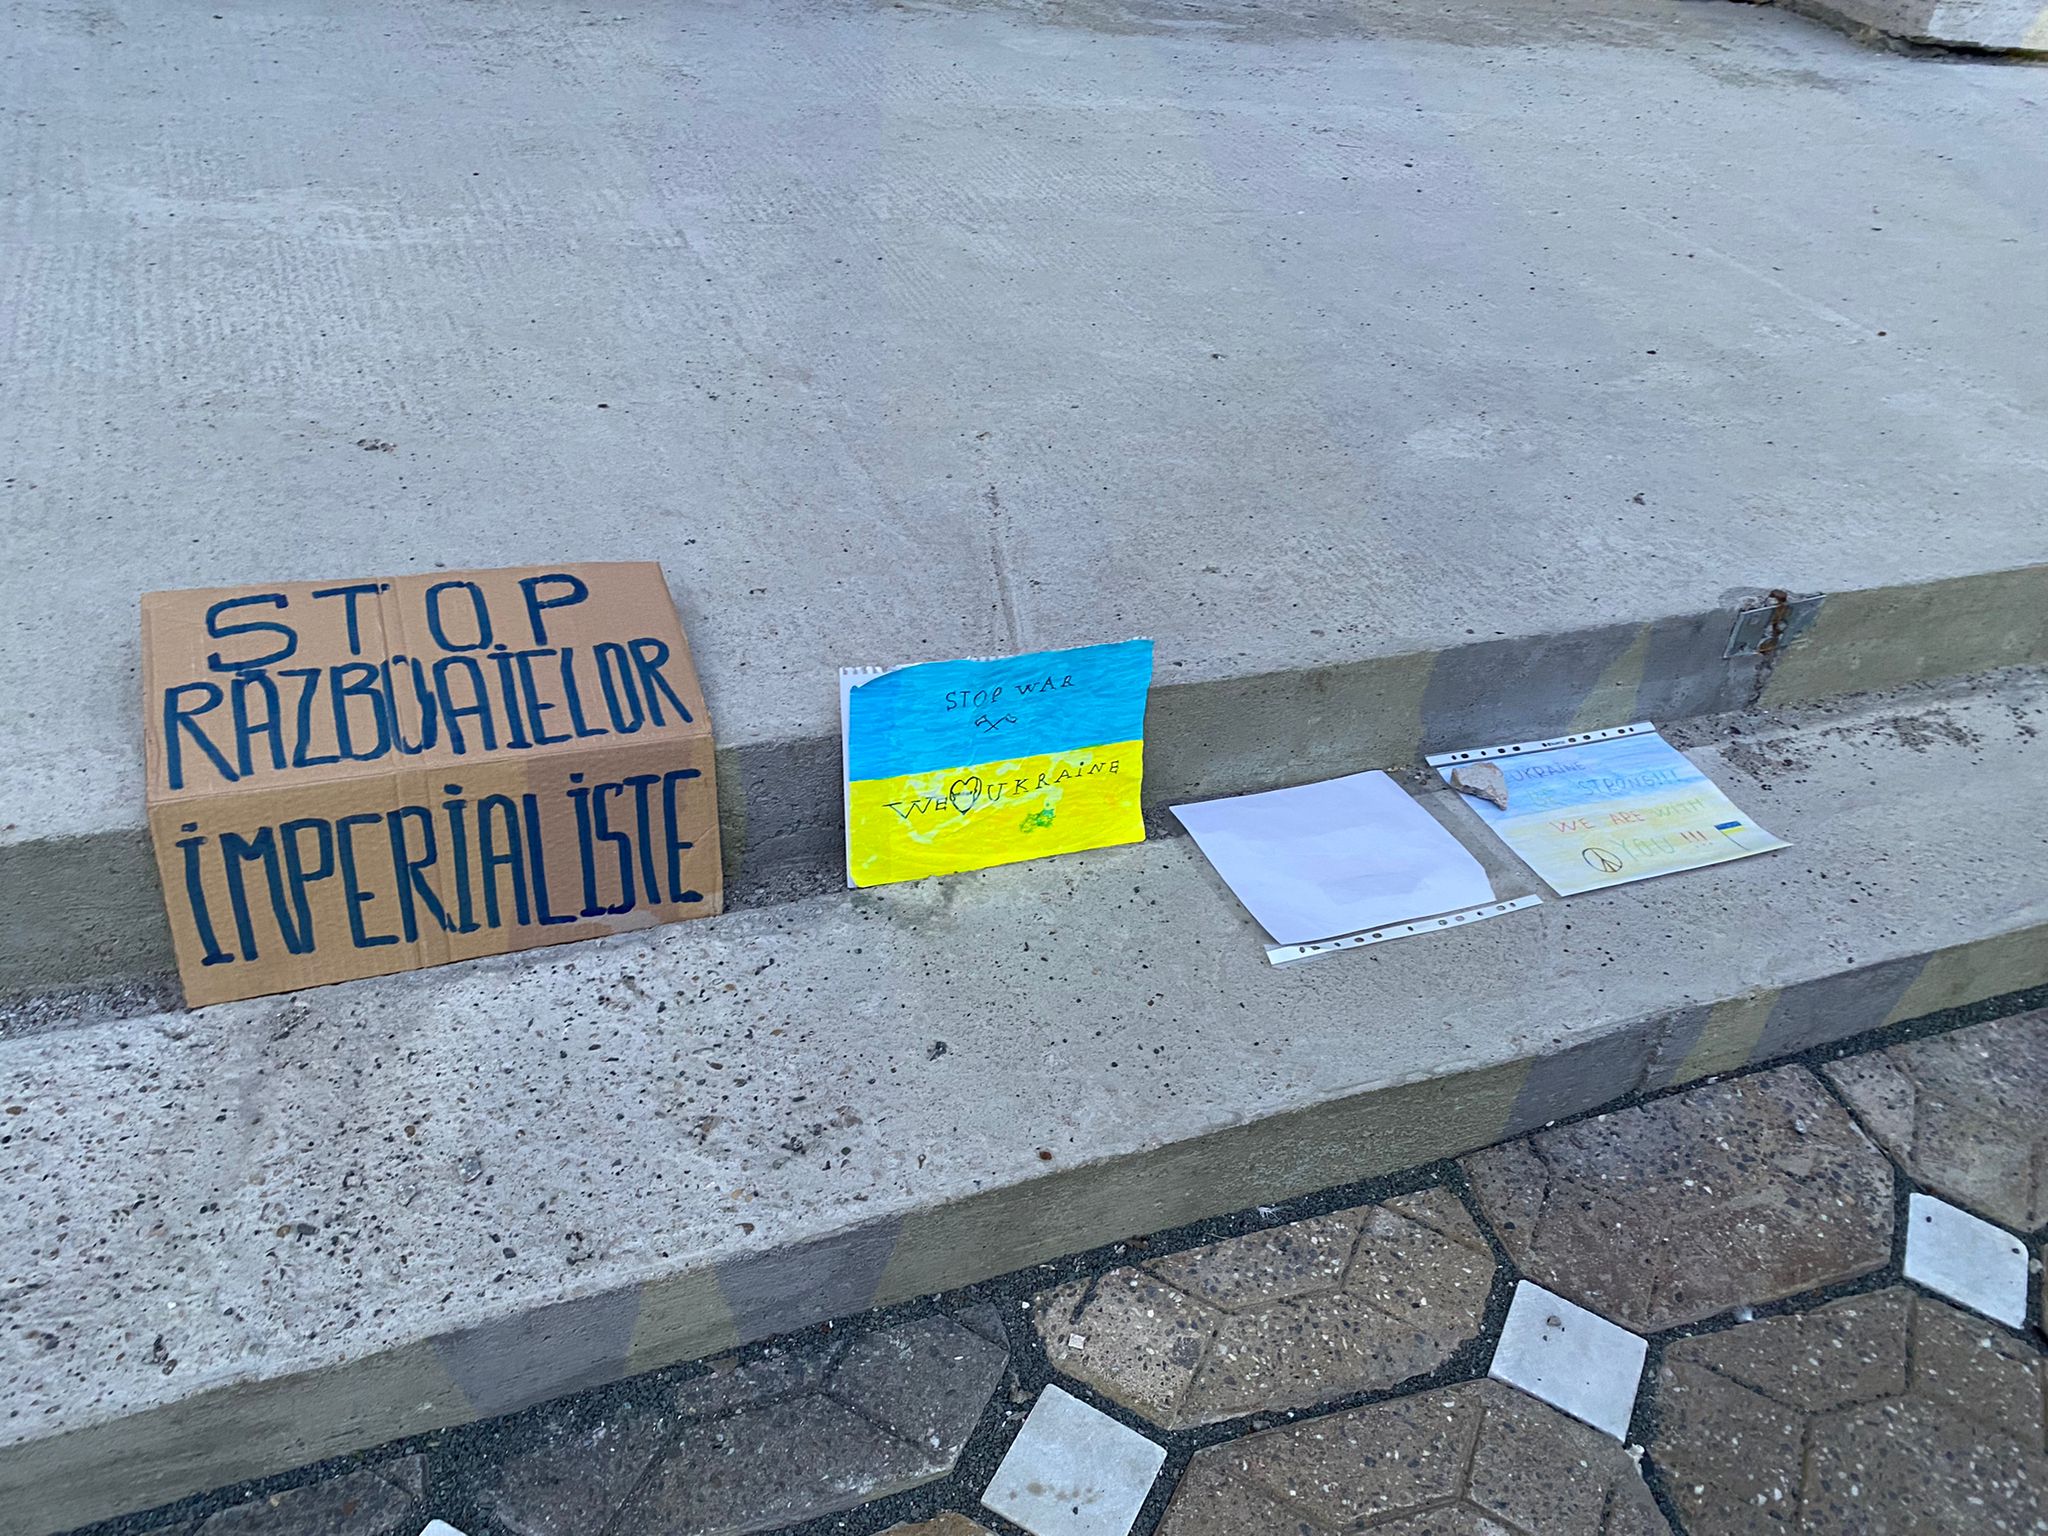 STOP
RAZBOAIELOR
IMPERIALISTE
STOP WAR
WE UKRAINE
UKRAINE
BE STRONG!!!
WE ARE WITH
YOU !!!